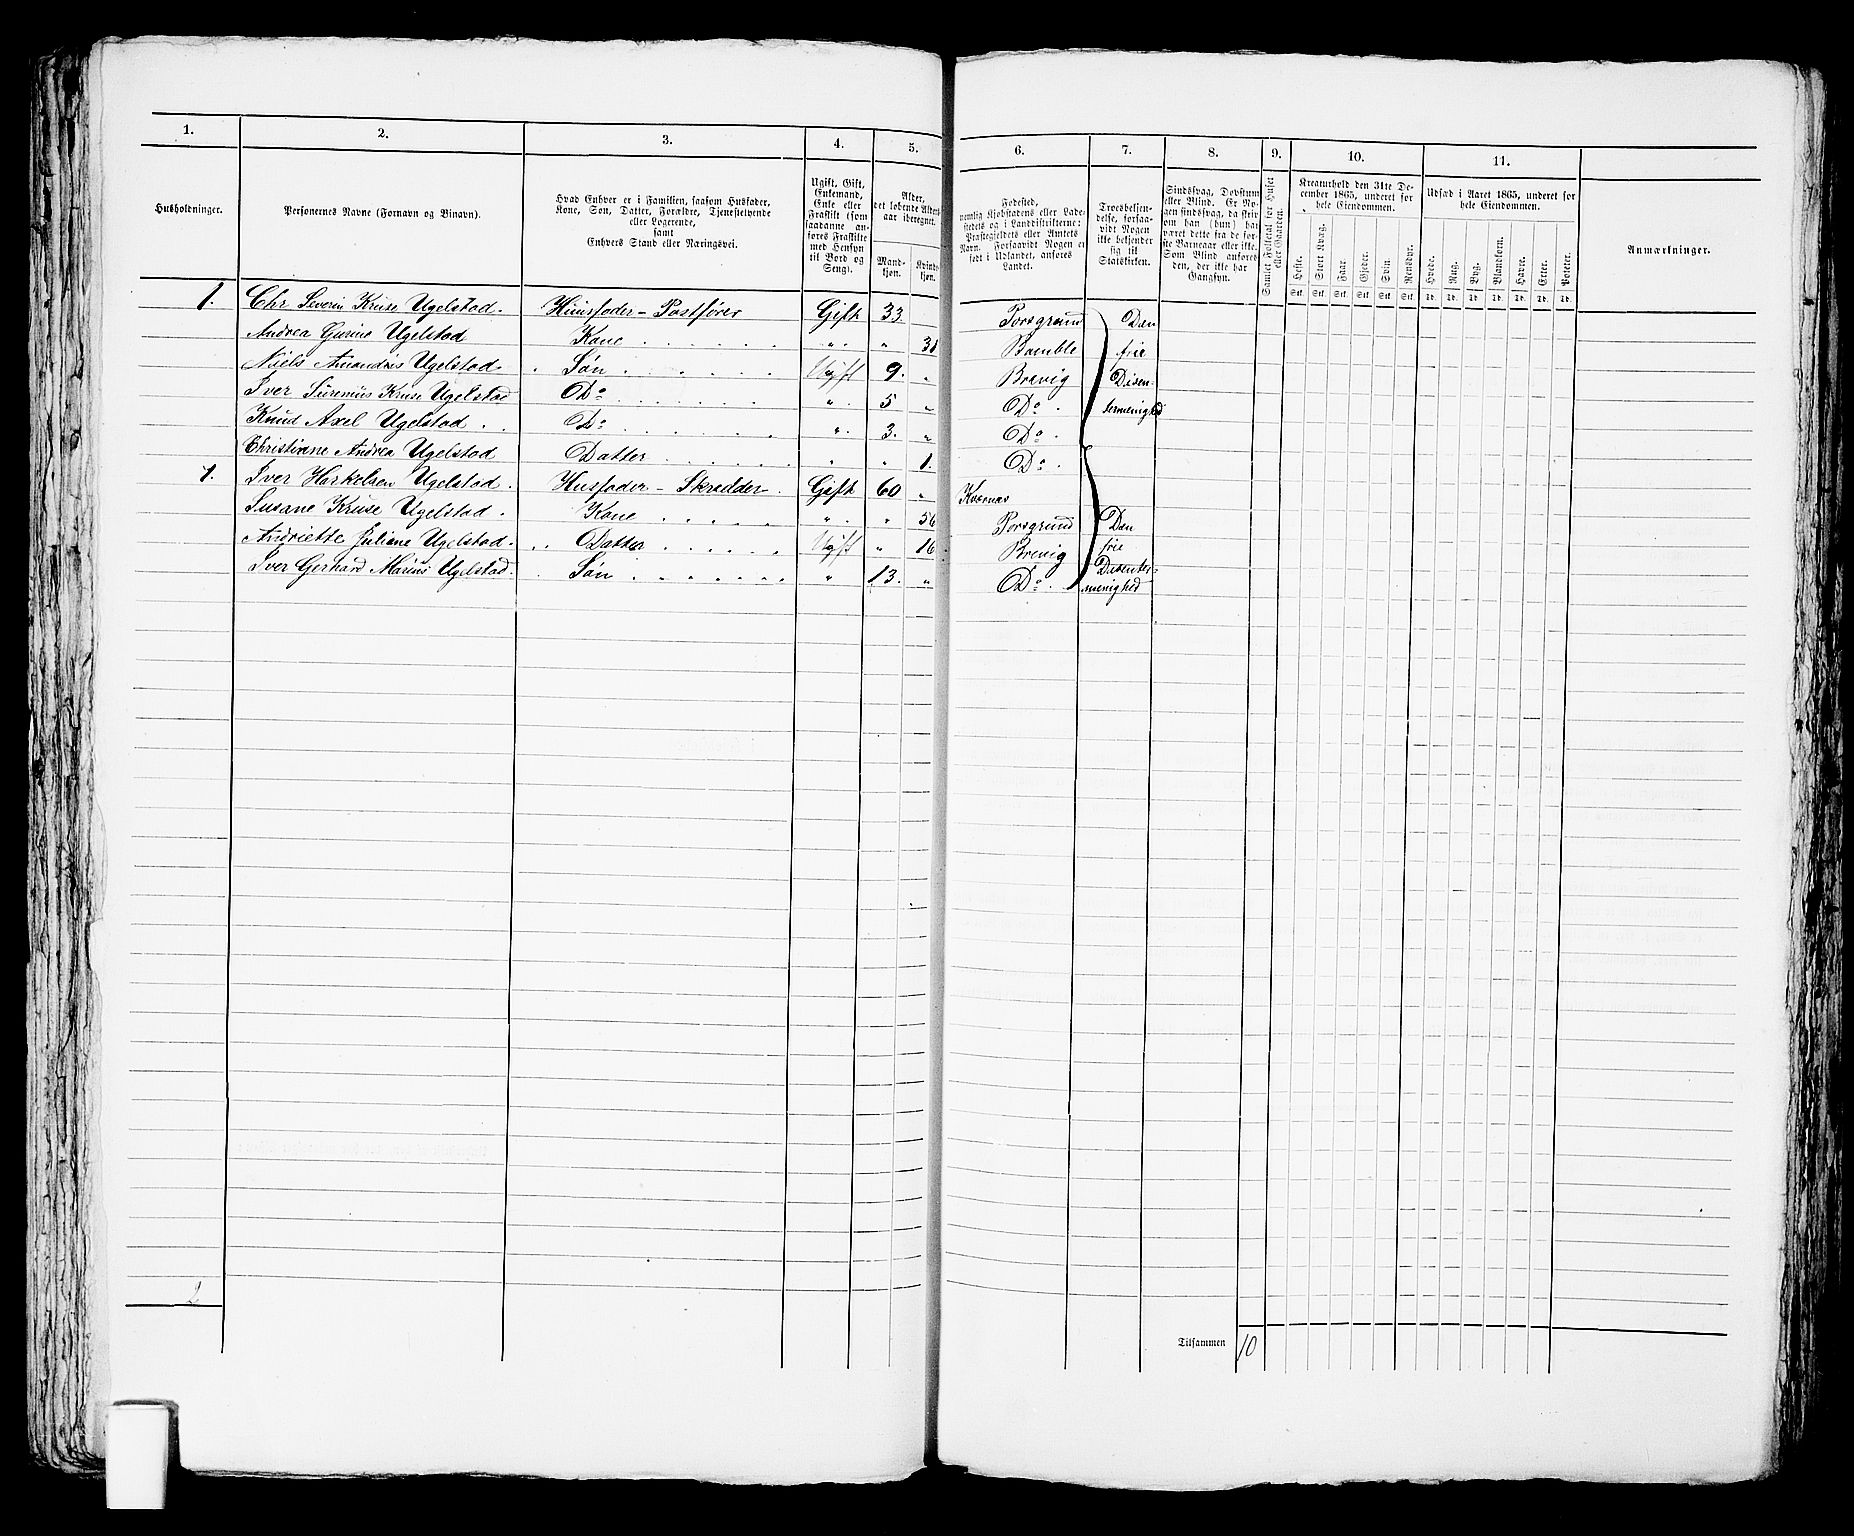 1. 2. 3. 4. 5. 6. 7. 8. 9. 10. 11.
Husholdninger.
Personernes Navne (Fornavn og Binavn).
Hvad Enhver er i Familien, saasom Husfader,
Kone, Søn, Datter, Forældre, Tjenestetyende
eller Logerende,
samt
Enhvers Stand eller Næringsvei.
Ugift, Gift,
Enkemand,
Enke eller
Fraskilt (som
saadanne an-
føres Fraskilte
med Hensyn
til Bord og
Seng).
Alder,
det løbende Alders-
aar iberegnet.
Mand-
kjøn.
Kvinde-
kjøn.
Fødested,
nemlig Kjøbstadens eller Lade-
stedets og i Landdistrikterne:
Præstegjeldets eller Amtets
Navn. Forsaavidt Nogen er
født i Udlandet, anføres
Landet.
Troesbekjen-
delse, forsaa-
vidt Nogen
ikke bekjender
sig til
Statskirken.
Sindssvag, Døvstum
eller Blind. Er No-
gen sindssvag, da skriv
om han (hun) har
været dette fra de før-
ste Barneaar eller ikke.
Som Blind anføres
den, der ikke har
Gangsyn.
Samlet Folketal for Huset
eller Gaarden.
Kreaturhold den 31te De-
cember 1865, underet for
hele Eiendommen.
Heste. Stort Kvæg. Faar. Gjeder. Svin. Rensdyr.
Stk. Stk. Stk. Stk. Stk. Stk.
Udsæd i Aaret 1865, underet for
hele Eiendommen.
Hvede. Rug. Byg. Blandkorn. Havre. Erter. Poteter.
Td. Td. Td. Td. Td. Td. Td.
Anmærkninger.
1. Chr Severin Kruse Ugelstad. Huusfader - Postfører Gift 33. Porsgrund Den
Andrea Gurine Ugelstad Kone " " Bamble frie
Niels Amandus Ugelstad Søn Ugift 9. " Brevig Disen-
Iver Surenius Kruse Ugelstad Do " 5 " Do termenighed
Knud Axel Ugelstad Do " 3. " Do
Christiane Andrea Ugelstad Datter " " 1. Do
1. Iver Harkelsen Ugelstad. Husfader - Skrædder Gift 60 " Kvernæs
Susane Kruse Ugelstad. Kone " " 56 Porsgrund Den
Andriette Juliane Ugelstad. Datter Ugift " 16 Brevig frie
Iver Gerhard Marius Ugelstad. Søn " 13. " Do Disenter-
menighed
2
Tilsammen 10